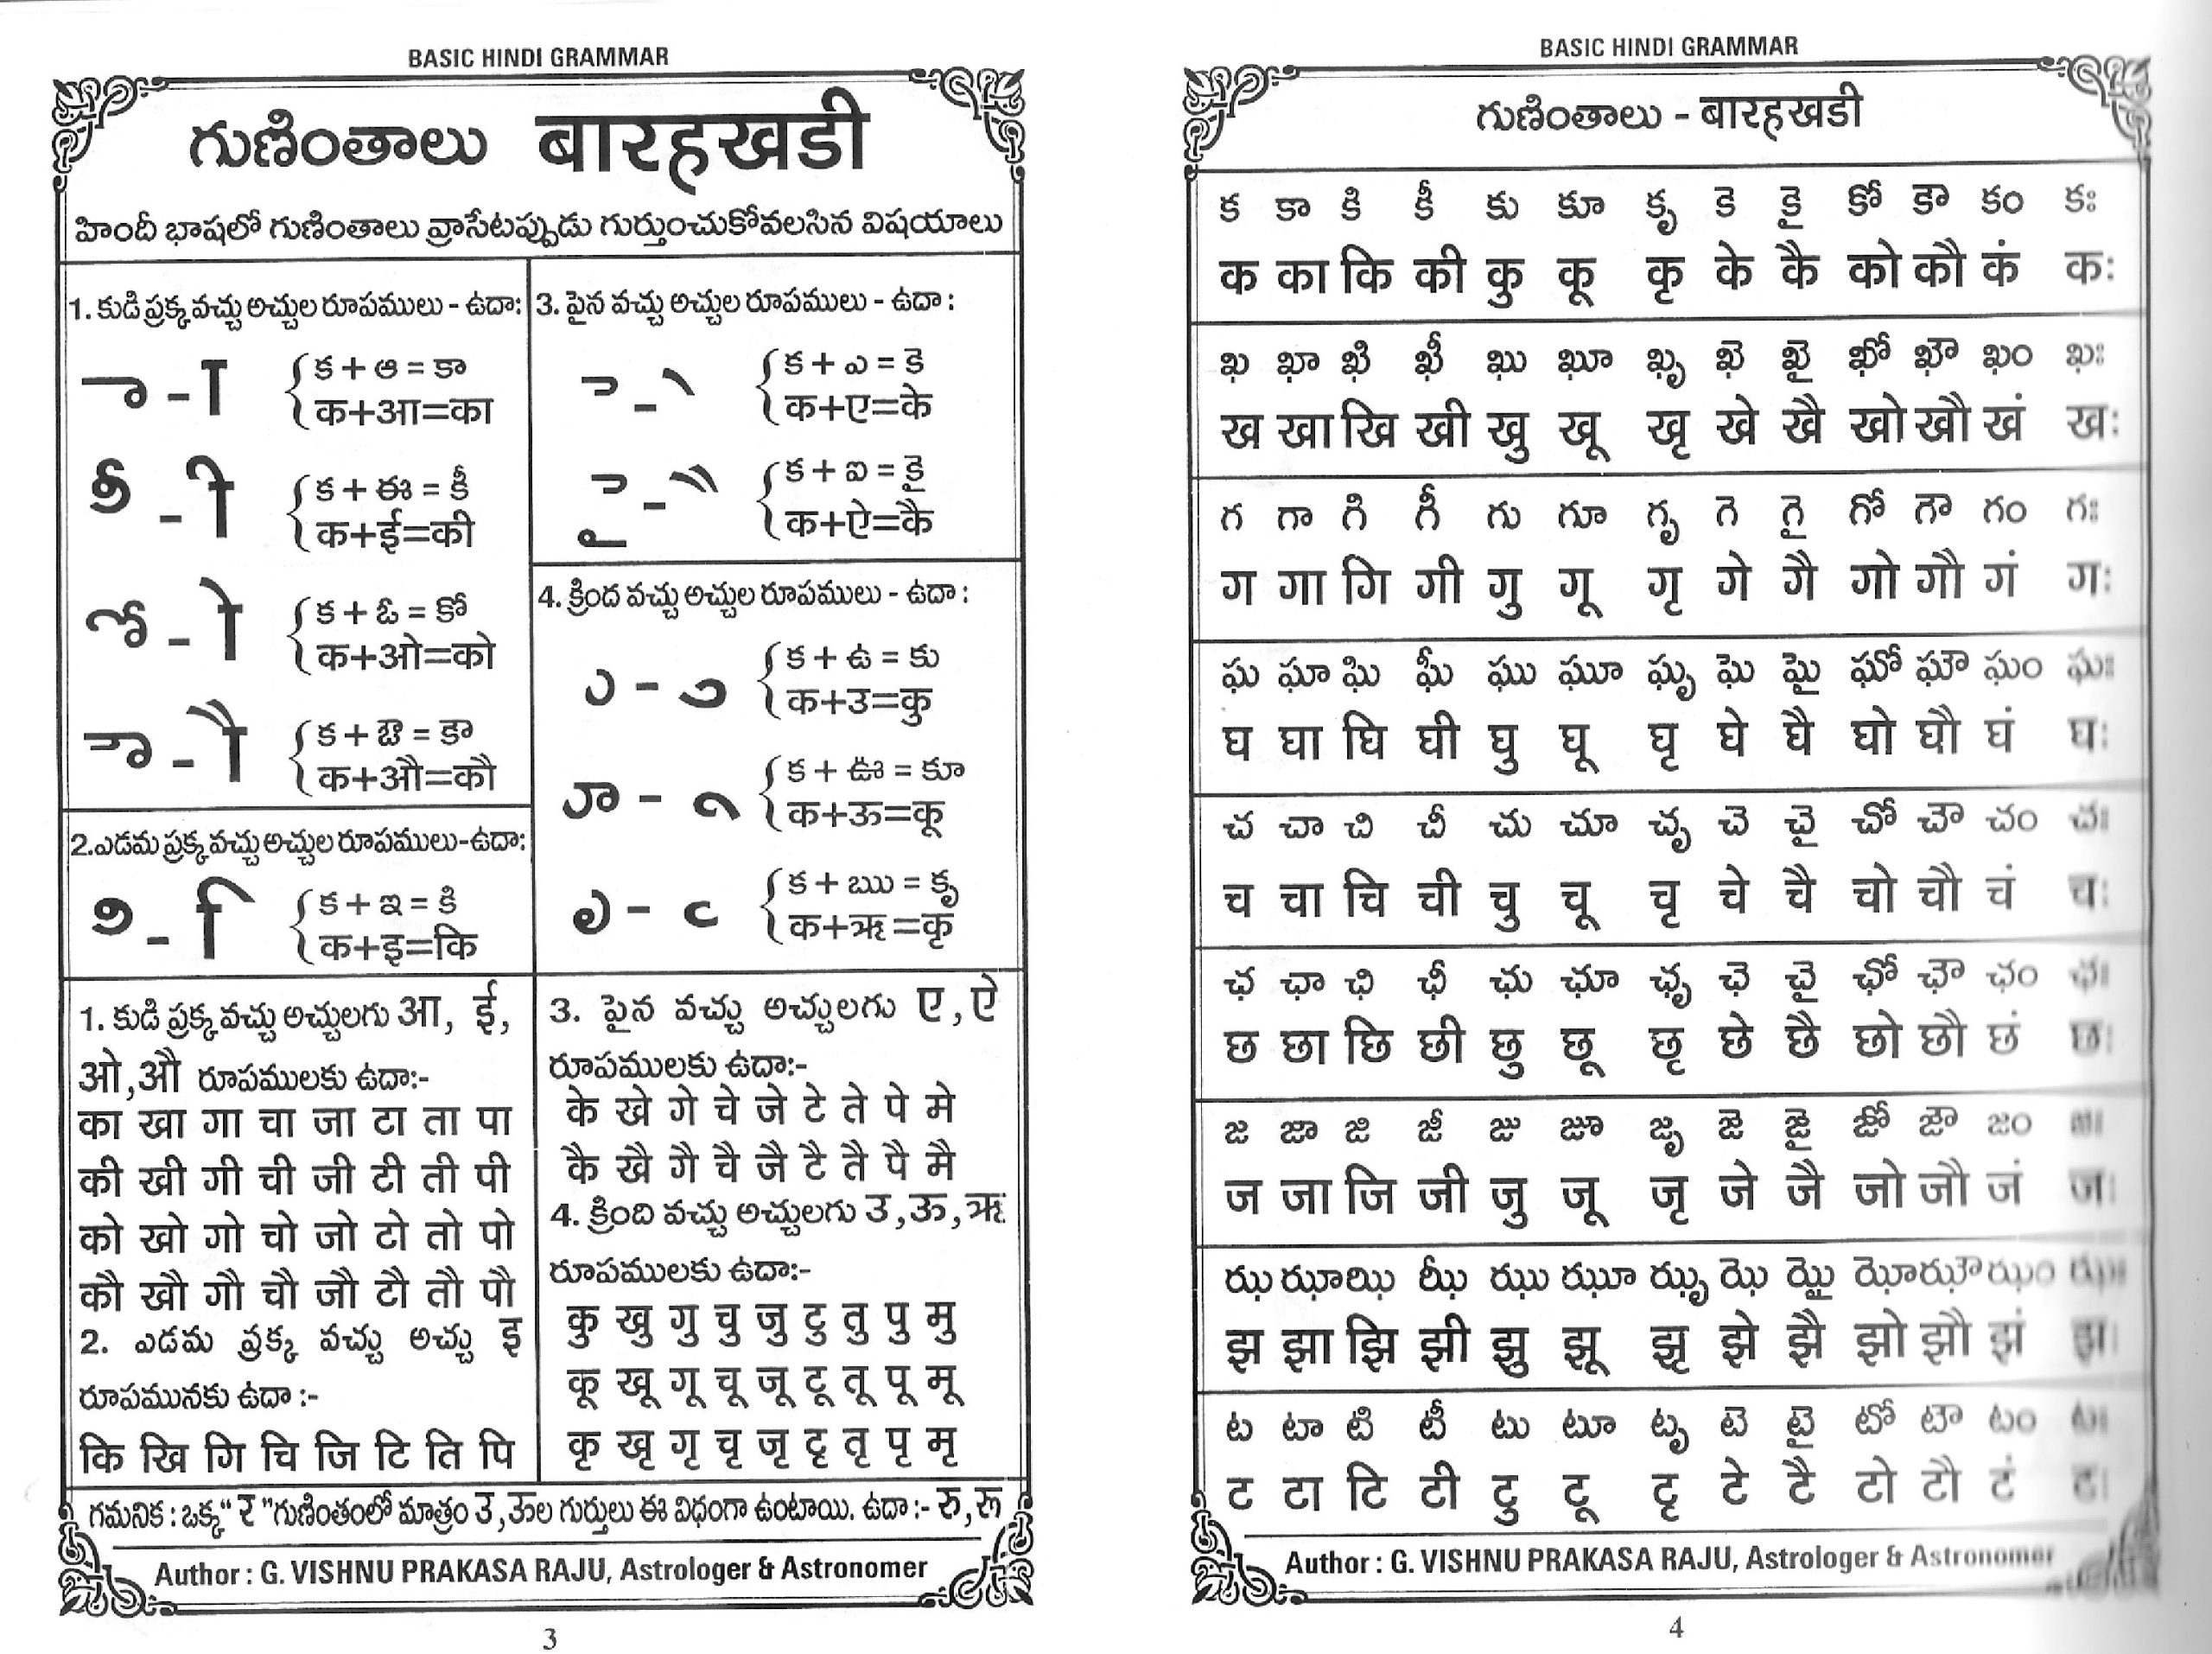 BASIC HINDI GRAMMAR
గుణింతాలు बारहखडी
హిందీ భాషలో గుణింతాలు వ్రాసేటప్పుడు గుర్తుంచుకోవలసిన విషయాలు
1. కుడి ప్రక్క వచ్చు అచ్చుల రూపములు - ఉదా:
ా - ा
క + ఆ = కా
क+आ=का
ీ - ी
క + ఈ = కీ
क+ई=की
ో - ो
క + ఓ = కో
क+ओ=को
ౌ - ौ
క + ఔ = కౌ
क+औ=कौ
2.ఎడమ ప్రక్క వచ్చు అచ్చుల రూపములు-ఉదా:
ి - ि
క + ఇ = కి
क+इ=कि
3. పైన వచ్చు అచ్చుల రూపములు - ఉదా :
ె - े
క + ఎ = కె
क+ए=के
ై - ै
క + ఐ = కై
क+ऐ=कै
4. క్రింద వచ్చు అచ్చుల రూపములు - ఉదా :
ు - ु
క + ఉ = కు
क+उ=कु
ూ - ू
క + ఊ = కూ
क+ऊ=कू
ృ - ृ
క + ఋ = కృ
क+ऋ=कृ
1. కుడి ప్రక్క వచ్చు అచ్చులగు आ, ई,
ओ,औ రూపములకు ఉదా:-
का खा गा चा जा टा ता पा
की खी गी ची जी टी ती पी
को खो गो चो जो टो तो पो
कौ खौ गौ चौ जौ टौ तौ पौ
2. ఎడమ ప్రక్క వచ్చు అచ్చు इ
రూపమునకు ఉదా :-
कि खि गि चि जि टि ति पि
3. పైన వచ్చు అచ్చులగు ए,ऐ
రూపములకు ఉదా:-
के खे गे चे जे टे ते पे मे
कै खै गै चै जै टै तै पै मै
4. క్రింది వచ్చు అచ్చులగు उ,ऊ,ऋ
రూపములకు ఉదా:-
कु खु गु चु जु टु तु पु मु
कू खू गू चू जू टू तू पू मू
कृ खृ गृ चृ जृ टृ तृ पृ मृ
గమనిక : ఒక్క "र" గుణింతంలో మాత్రం उ,ऊల గుర్తులు ఈ విధంగా ఉంటాయి. ఉదా :- रु,रू
Author : G. VISHNU PRAKASA RAJU, Astrologer & Astronomer
3
BASIC HINDI GRAMMAR
గుణింతాలు - बारहखडी
క కా కి కీ కు కూ కృ కె కై కో కౌ కం కః
क का कि की कु कू कृ के कै को कौ कं कः
ఖ ఖా ఖి ఖీ ఖు ఖూ ఖృ ఖె ఖై ఖో ఖౌ ఖం ఖః
ख खा खि खी खु खू खृ खे खै खो खौ खं खः
గ గా గి గీ గు గూ గృ గె గై గో గౌ గం గః
ग गा गि गी गु गू गृ गे गै गो गौ गं गः
ఘ ఘా ఘి ఘీ ఘు ఘూ ఘృ ఘె ఘై ఘో ఘౌ ఘం ఘః
घ घा घि घी घु घू घृ घे घै घो घौ घं घः
చ చా చి చీ చు చూ చృ చె చై చో చౌ చం చః
च चा चि ची चु चू चृ चे चै चो चौ चं चः
ఛ ఛా ఛి ఛీ ఛు ఛూ ఛృ ఛె ఛై ఛో ఛౌ ఛం ఛః
छ छा छि छी छु छू छृ छे छै छो छौ छं छः
జ జా జి జీ జు జూ జృ జె జై జో జౌ జం
ज जा जि जी जु जू जृ जे जै जो जौ जं जः
ఝ ఝా ఝి ఝీ ఝు ఝూ ఝృ ఝె ఝై ఝో ఝౌ ఝం ఝః
झ झा झि झी झु झू झृ झे झै झो झौ झं झः
ట టా టి టీ టు టూ టృ టె టై టో టౌ టం టః
ट टा टि टी टु टू टृ टे टै टो टौ टं टः
Author : G. VISHNU PRAKASA RAJU, Astrologer & Astronomer
4